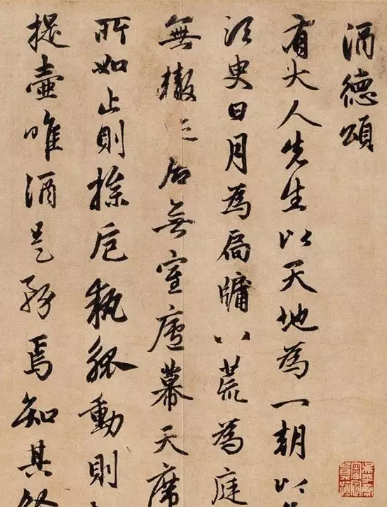 酒德頌
有大人先生以天地為一朝以
須臾日月為扃牖八荒為庭
無轍迹居無室廬幕天席
所如止則操卮執觚動則
提壺唯酒是務焉知其